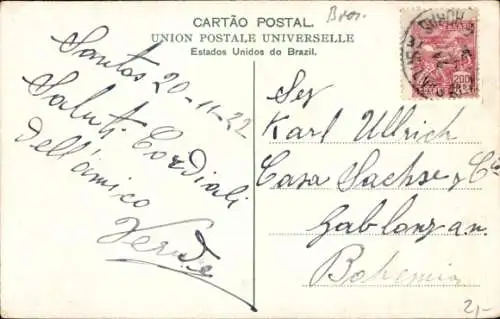 Bras.
CARTÃO POSTAL.
UNION POSTALE UNIVERSELLE
Estados Unidos do Brazil.
Santos 20-11-22
Saluti Cordiali
dell'amico
200
Ser
Karl Ullrich
Casa Sachse y Cia
Gablonz an.
Bohemia
2,-